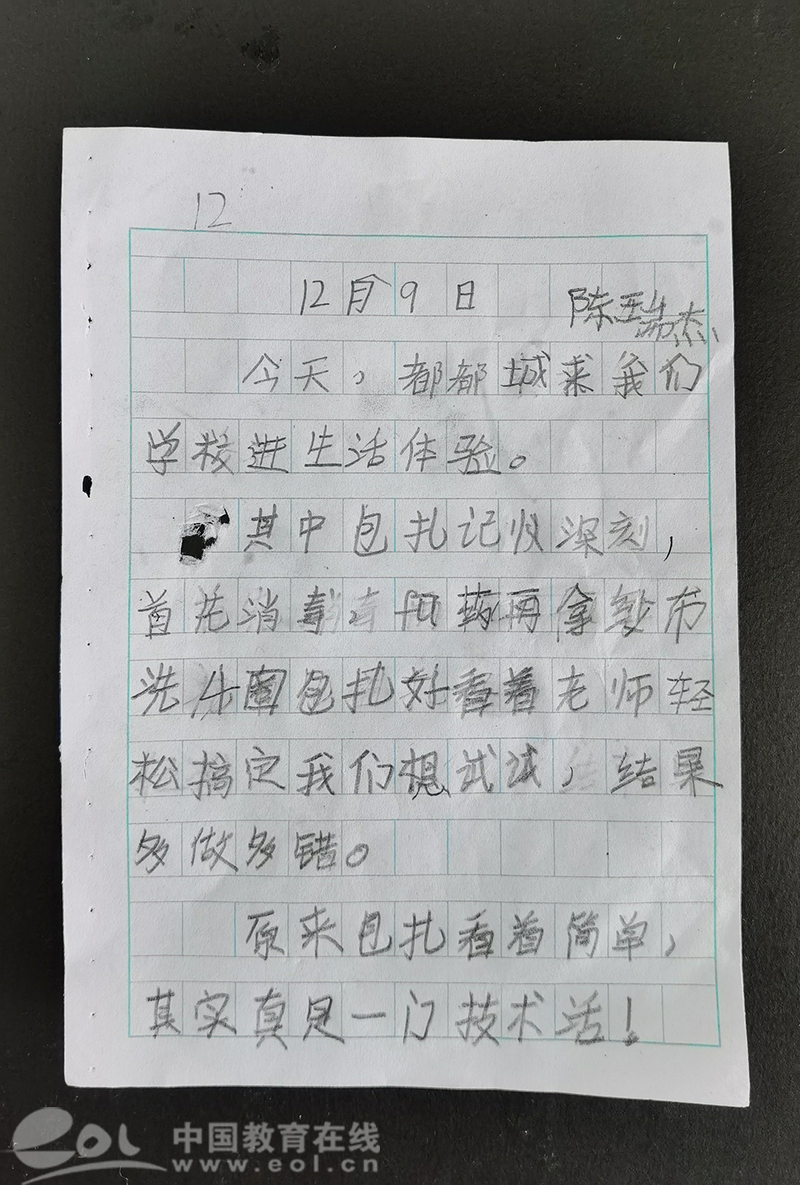 12
12月9日 陈瑞杰
今天，都都城来我们
学校进生活体验。
其中包扎记忆深刻，
首先消毒，再拿纱布
洗4圈包扎好看着老师轻
松搞定我们想试试，结果
多做多错。
原来包扎看着简单，
其实真是一门技术活！
eol 中国教育在线
www.eol.cn